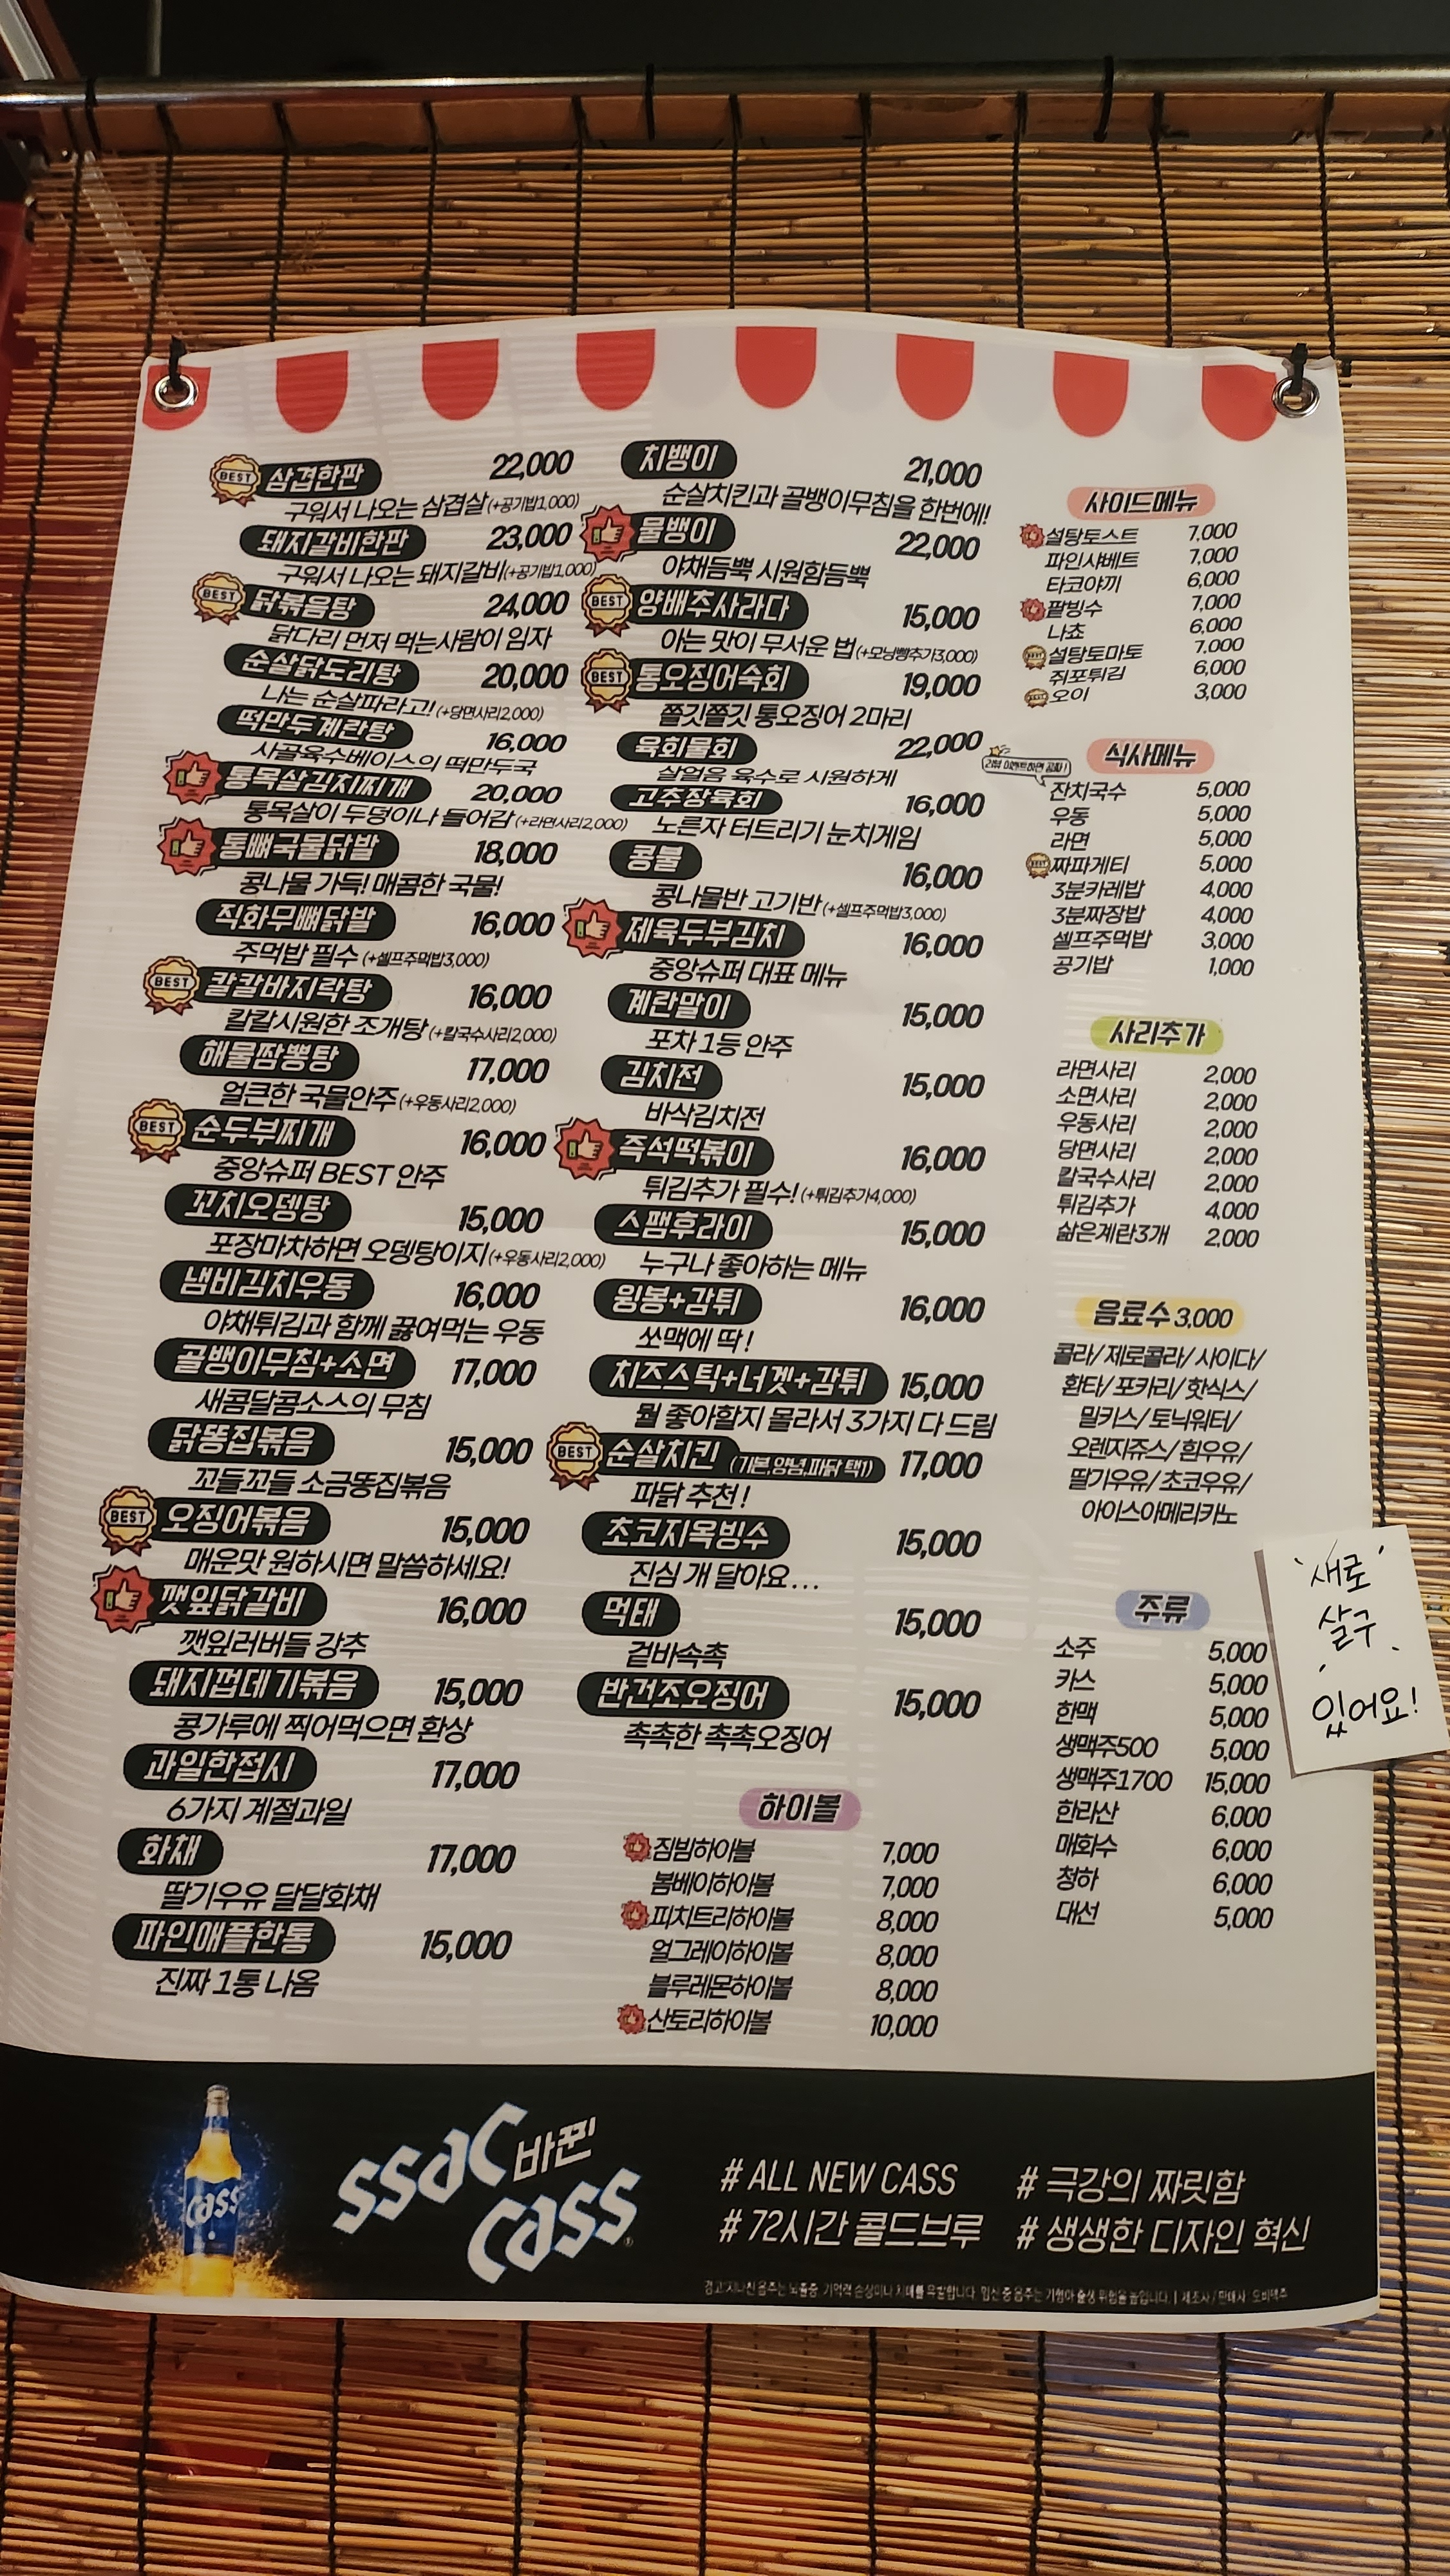 BEST 삼겹한판 22,000
구워서 나오는 삼겹살 (+공기밥1,000)
돼지갈비한판 23,000
구워서 나오는 돼지갈비(+공기밥1,000)
BEST 닭볶음탕 24,000
닭다리 먼저 먹는사람이 임자
순살닭도리탕 20,000
나는 순살파라고! (+당면사리2,000)
떡만두계란탕 16,000
사골육수베이스의 떡만두국
통목살김치찌개 20,000
통목살이 두덩이나 들어감 (+라면사리2,000)
통뼈국물닭발 18,000
콩나물 가득! 매콤한 국물!
직화무뼈닭발 16,000
주먹밥 필수 (+셀프주먹밥3,000)
BEST 칼칼바지락탕 16,000
칼칼시원한 조개탕 (+칼국수사리2,000)
해물짬뽕탕 17,000
얼큰한 국물안주 (+우동사리2,000)
BEST 순두부찌개 16,000
중앙슈퍼 BEST 안주
꼬치오뎅탕 15,000
포장마차하면 오뎅탕이지 (+우동사리2,000)
냄비김치우동 16,000
야채튀김과 함께 끓여먹는 우동
골뱅이무침+소면 17,000
새콤달콤소스의 무침
닭똥집볶음 15,000
꼬들꼬들 소금똥집볶음
BEST 오징어볶음 15,000
매운맛 원하시면 말씀하세요!
깻잎닭갈비 16,000
깻잎러버들 강추
돼지껍데기볶음 15,000
콩가루에 찍어먹으면 환상
과일한접시 17,000
6가지 계절과일
화채 17,000
딸기우유 달달화채
파인애플한통 15,000
진짜 1통 나옴
치뱅이 21,000
순살치킨과 골뱅이무침을 한번에!
물뱅이 22,000
야채듬뿍 시원함듬뿍
BEST 양배추사라다 15,000
아는 맛이 무서운 법 (+모닝빵추가3,000)
BEST 통오징어숙회 19,000
쫄깃쫄깃 통오징어 2마리
육회물회 22,000
살얼음 육수로 시원하게
고추장육회 16,000
노른자 터트리기 눈치게임
콩불 16,000
콩나물반 고기반 (+셀프주먹밥3,000)
제육두부김치 16,000
중앙슈퍼 대표 메뉴
계란말이 15,000
포차 1등 안주
김치전 15,000
바삭김치전
즉석떡볶이 16,000
튀김추가 필수! (+튀김추가4,000)
스팸후라이 15,000
누구나 좋아하는 메뉴
윙봉+감튀 16,000
쏘맥에 딱!
치즈스틱+너겟+감튀 15,000
뭘 좋아할지 몰라서 3가지 다 드림
BEST 순살치킨 (기본,양념,파닭 택1) 17,000
파닭 추천!
초코지옥빙수 15,000
진심 개 달아요...
먹태 15,000
겉바속촉
반건조오징어 15,000
촉촉한 촉촉오징어
하이볼
짐빔하이볼 7,000
봄베이하이볼 7,000
피치트리하이볼 8,000
얼그레이하이볼 8,000
블루레몬하이볼 8,000
산토리하이볼 10,000
사이드메뉴
설탕토스트 7,000
파인샤베트 7,000
타코야끼 6,000
팥빙수 7,000
나쵸 6,000
BEST 설탕토마토 7,000
쥐포튀김 6,000
BEST 오이 3,000
식사메뉴
리뷰 이벤트하면 공짜!
잔치국수 5,000
우동 5,000
라면 5,000
BEST 짜파게티 5,000
3분카레밥 4,000
3분짜장밥 4,000
셀프주먹밥 3,000
공기밥 1,000
사리추가
라면사리 2,000
소면사리 2,000
우동사리 2,000
당면사리 2,000
칼국수사리 2,000
튀김추가 4,000
삶은계란3개 2,000
음료수 3,000
콜라/ 제로콜라/ 사이다/
환타/ 포카리/ 핫식스/
밀키스/ 토닉워터/
오렌지쥬스/ 흰우유/
딸기우유/ 초코우유/
아이스아메리카노
주류
소주 5,000
카스 5,000
한맥 5,000
생맥주500 5,000
생맥주1700 15,000
한라산 6,000
매화수 6,000
청하 6,000
대선 5,000
새로
살구
있어요!
cass
ssac 바뀐
cass
# ALL NEW CASS # 극강의 짜릿함
# 72시간 콜드브루 # 생생한 디자인 혁신
경고:지나친 음주는 뇌졸중, 기억력 손상이나 치매를 유발합니다. 임신 중 음주는 기형아 출생 위험을 높입니다. | 제조사 / 판매사 : 오비맥주